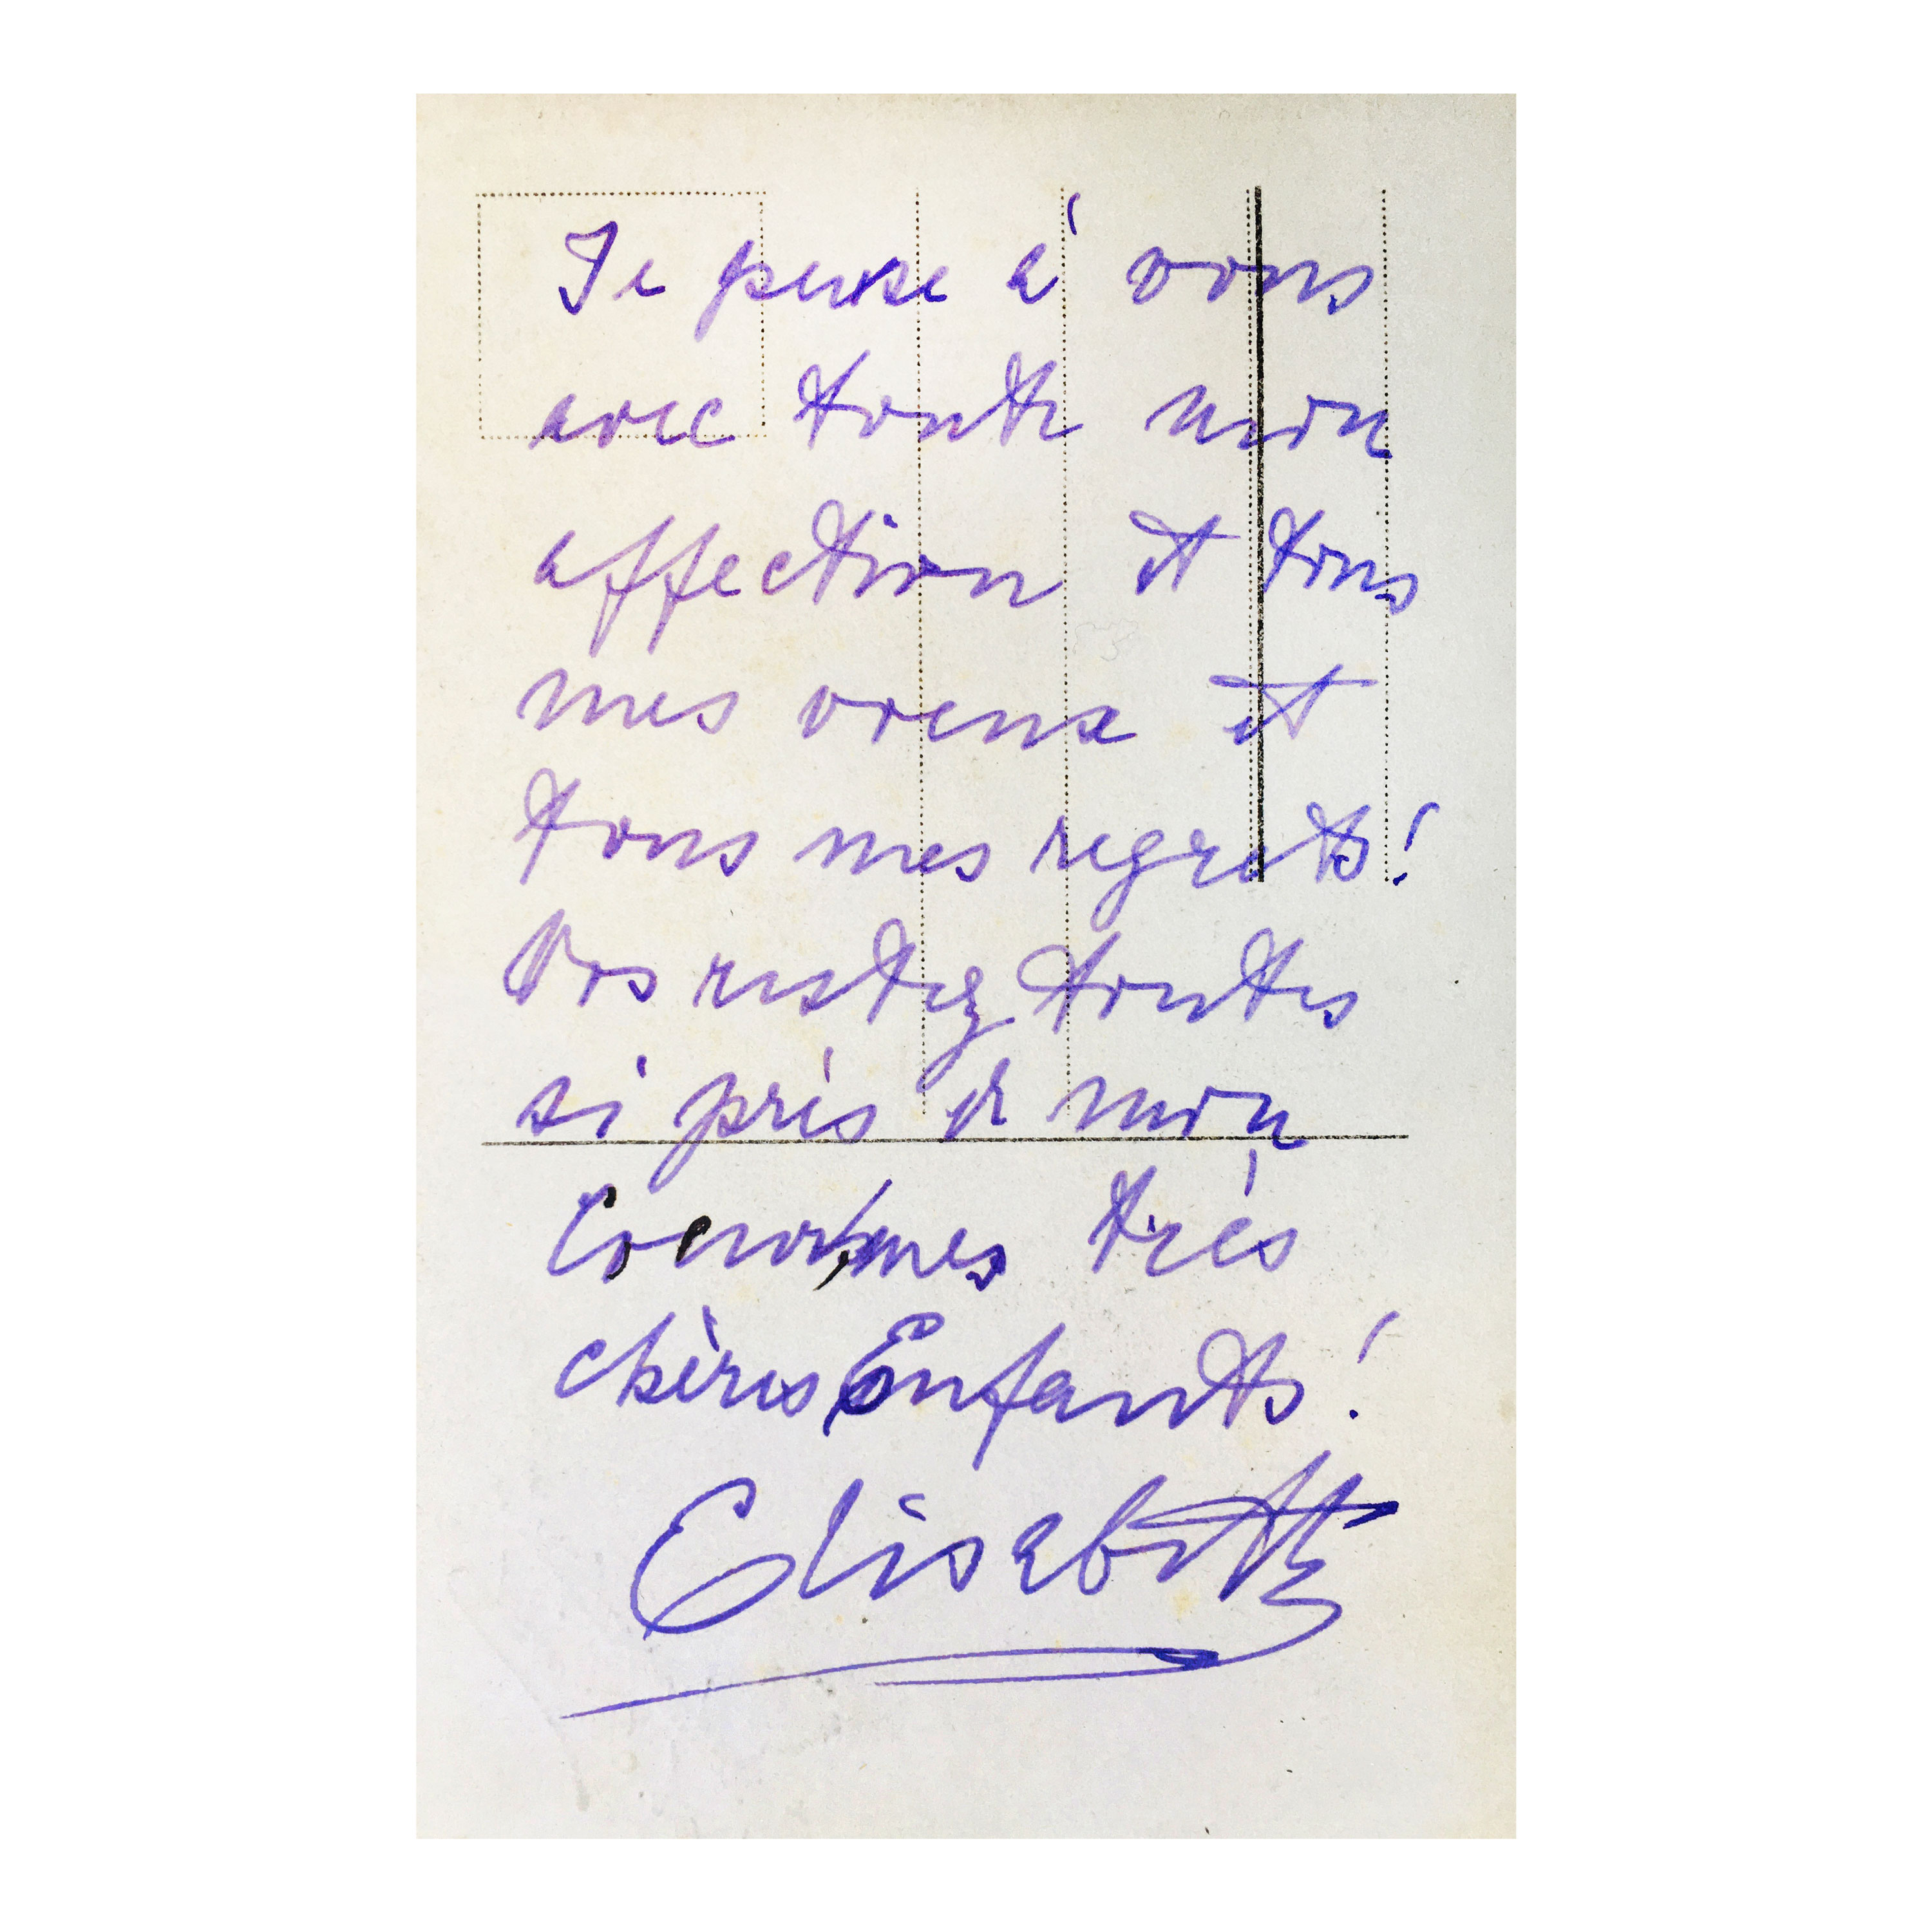 Je pense à vous
avec toute mon
affection et tous
mes voeux et
tous mes regrets!
Vos restez toutes
si près de mon
Coeur, mes très
chères Enfants!
Elisabeth